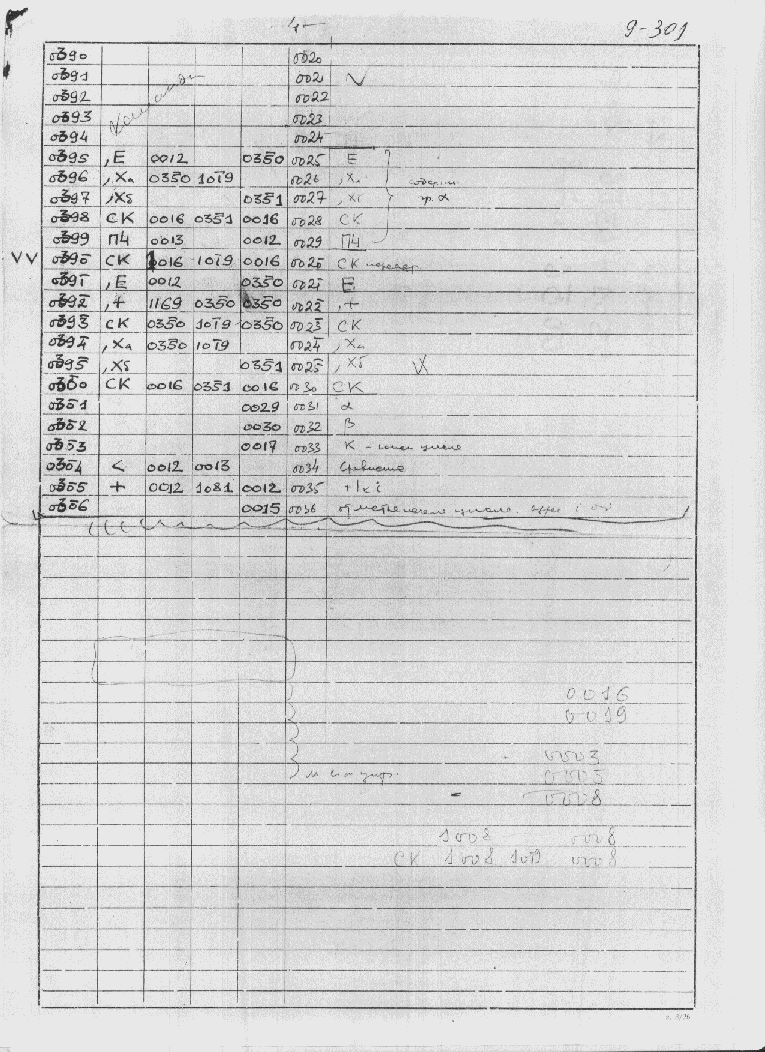 -4-
9-301
0390 0020
0391 002 V
0392 0022
0393 0023
0394 0024
0395 ,Е 0012 0350 0025 Е
0396 ,Ха 0350 10Т9 0026 ,Х
0397 ,Хδ 0351 0027 ,Хδ гр. α
0398 СК 0016 0351 0016 0028 СК
0399 П4 0013 0012 0029 П4
VV 0390̄ СК 0016 10Т9 0016 0020̄ СК
0391̄ ,Е 0012 0350 0021̄ Е
0392̄ ,+ 1169 0350 0350 0022̄ ,+
0393̄ СК 0350 10Т9 0350 0023̄ СК
0394̄ ,Ха 0350 10Т9 0024̄ ,Ха
0395̄ ,Хδ 0351 0025̄ ,Хδ V
0350 СК 0016 0351 0016 0030 СК
0351 0029 0031 α
0352 0030 0032 β
0353 0017 0033 К – цикла
0354 < 0012 0013 0034 Сравнение
0355 + 0012 1081 0012 0035 +1 к i
0356 0015 0036 цикла
0016
0019
0003
0005
0008
1008 0008
СК 1008 10Т9 0008